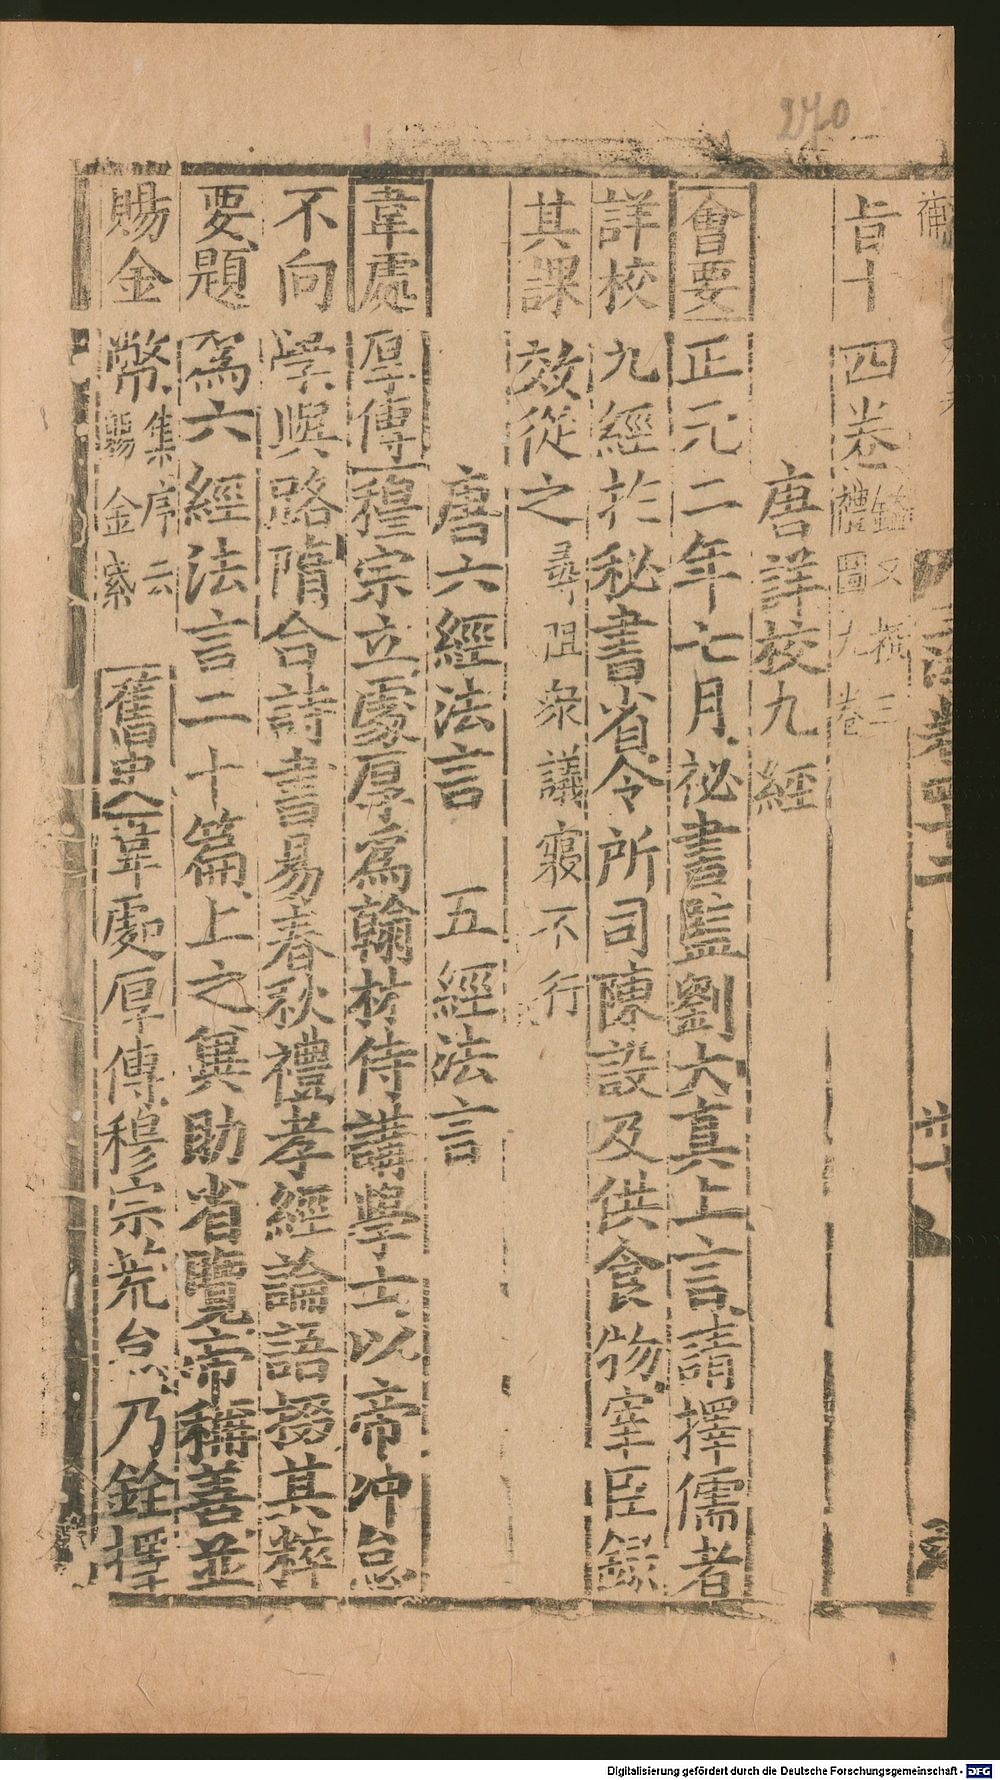 270
旨十四卷鎰又撰三禮圖九卷
唐詳校九經
會要正元二年七月祕書監劉太真上言請擇儒者
詳校九經於秘書省令所司陳設及供食物宰臣錄
其課效從之尋阻衆議寢不行
唐六經法言 五經法言
韋處厚傳穆宗立處厚爲翰林侍講學士以帝冲怠
不向學與路隋合詩書易春秋禮孝經論語掇其粹
要題爲六經法言二十篇上之冀助省覽帝稱善並
賜金幣集序云賜金紫舊史韋處厚傳穆宗荒怠乃銓擇
Digitalisierung gefördert durch die Deutsche Forschungsgemeinschaft - DFG